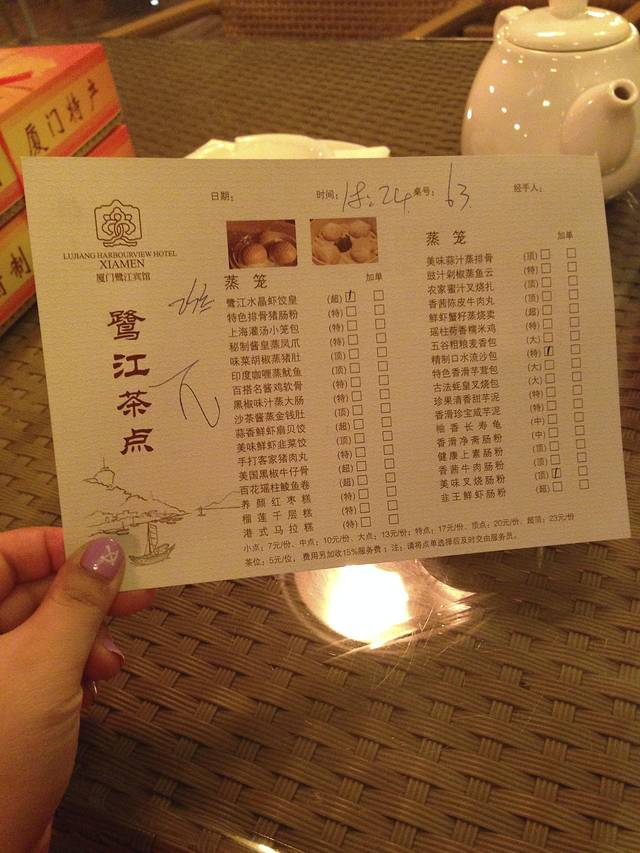 厦门特产
制
日期:
时间: 18:24
桌号: 63
经手人:
LUJIANG HARBOURVIEW HOTEL
XIAMEN
厦门鹭江宾馆
鹭江茶点
蒸笼 加单
鹭江水晶虾饺皇 (超)
特色排骨猪肠粉 (特)
上海灌汤小笼包 (特)
秘制酱皇蒸凤爪 (特)
味菜胡椒蒸猪肚 (顶)
印度咖喱蒸鱿鱼 (顶)
百搭名酱鸡软骨 (特)
黑椒味汁蒸大肠 (特)
沙茶酱蒸金钱肚 (顶)
蒜香鲜虾扇贝饺 (超)
美味鲜虾韭菜饺 (顶)
手打客家猪肉丸 (特)
美国黑椒牛仔骨 (超)
百花瑶柱鲮鱼卷 (超)
养颜红枣糕 (特)
榴莲千层糕 (特)
港式马拉糕 (特)
蒸笼 加单
美味蒜汁蒸排骨 (顶)
豉汁剁椒蒸鱼云 (特)
农家蜜汁叉烧扎 (特)
香茜陈皮牛肉丸 (特)
鲜虾蟹籽蒸烧卖 (超)
瑶柱荷香糯米鸡 (特)
五谷粗粮麦香包 (大)
精制口水流沙包 (特)
特色香滑芋茸包 (大)
古法蚝皇叉烧包 (大)
珍果清香甜芋泥 (特)
香滑珍宝咸芋泥 (特)
柚香长寿龟 (中)
香滑净斋肠粉 (中)
健康上素肠粉 (顶)
香茜牛肉肠粉 (顶)
美味叉烧肠粉 (顶)
韭王鲜虾肠粉 (超)
小点: 7元/份、中点: 10元/份、大点: 13元/份; 特点: 17元/份、顶点: 20元/份、超顶: 23元/份
茶位: 5元/位, 费用另加收15%服务费; 注: 请将点单选择后及时交由服务员。